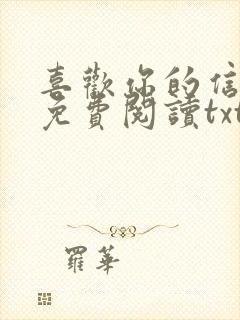 喜歡你的信
免費閱讀txt
羅華